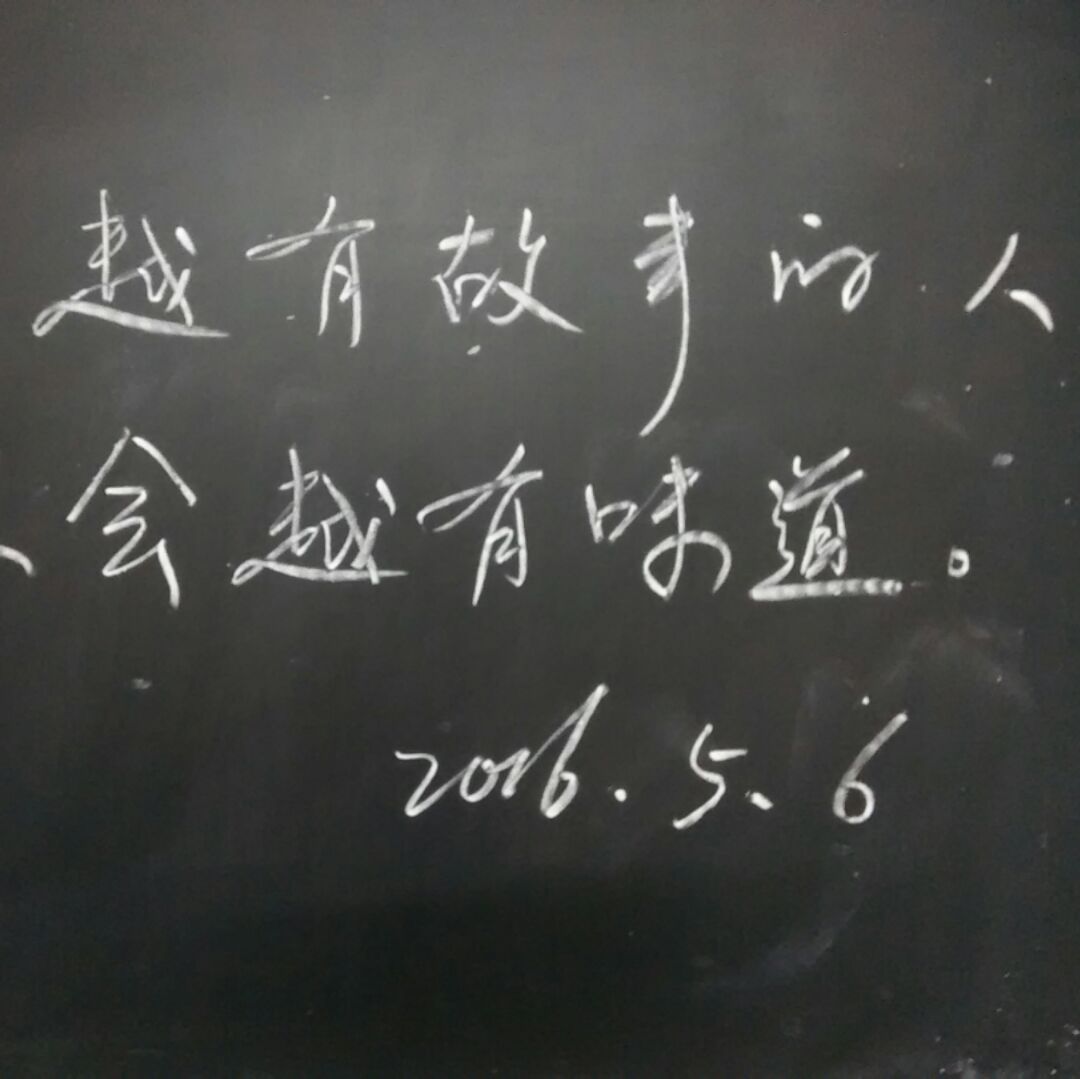 越有故事的人
会越有味道。
2016.5.6